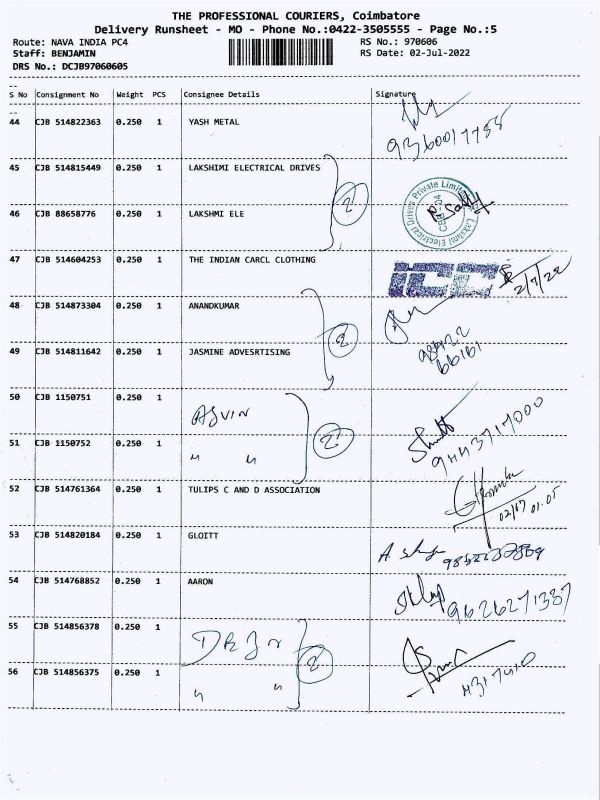 THE PROFESSIONAL COURIERS, Coimbatore
Delivery Runsheet - MO - Phone No.:0422-3505555 - Page No.:5
Route: NAVA INDIA PC4 RS No.: 970606
Staff: BENJAMIN RS Date: 02-Jul-2022
DRS No.: DCJB97060605
S No Consignment No Weight PCS Consignee Details Signature
44 CJB 514822363 0.250 1 YASH METAL
9360017755
45 CJB 514815449 0.250 1 LAKSHIMI ELECTRICAL DRIVES
2
46 CJB 88658776 0.250 1 LAKSHMI ELE
Lakshmi Electrical Drives Private Limited
47 CJB 514604253 0.250 1 THE INDIAN CARCL CLOTHING
ICC 2/7/22
48 CJB 514873304 0.250 1 ANANDKUMAR
2
49 CJB 514811642 0.250 1 JASMINE ADVESRTISING
98422
66161
50 CJB 1150751 0.250 1 ASVIN
2 9443717000
51 CJB 1150752 0.250 1 " "
52 CJB 514761364 0.250 1 TULIPS C AND D ASSOCIATION
02/07 01.05
53 CJB 514820184 0.250 1 GLOITT
54 CJB 514768852 0.250 1 AARON
9626271337
55 CJB 514856378 0.250 1
2
56 CJB 514856375 0.250 1 " "